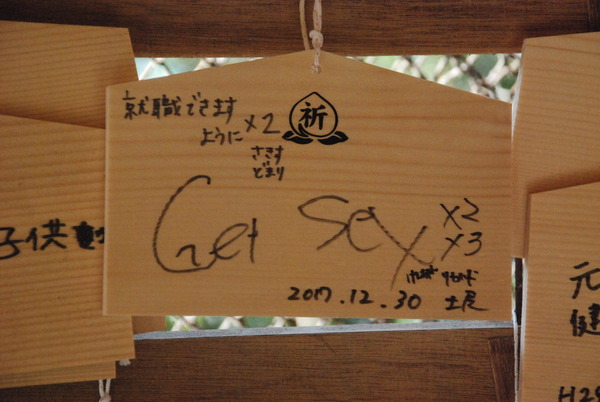 就職できます
ように ×2
祈
さきす
どまり
Get Sex ×2
×3
2017.12.30 土屋
子供
元
健
H29